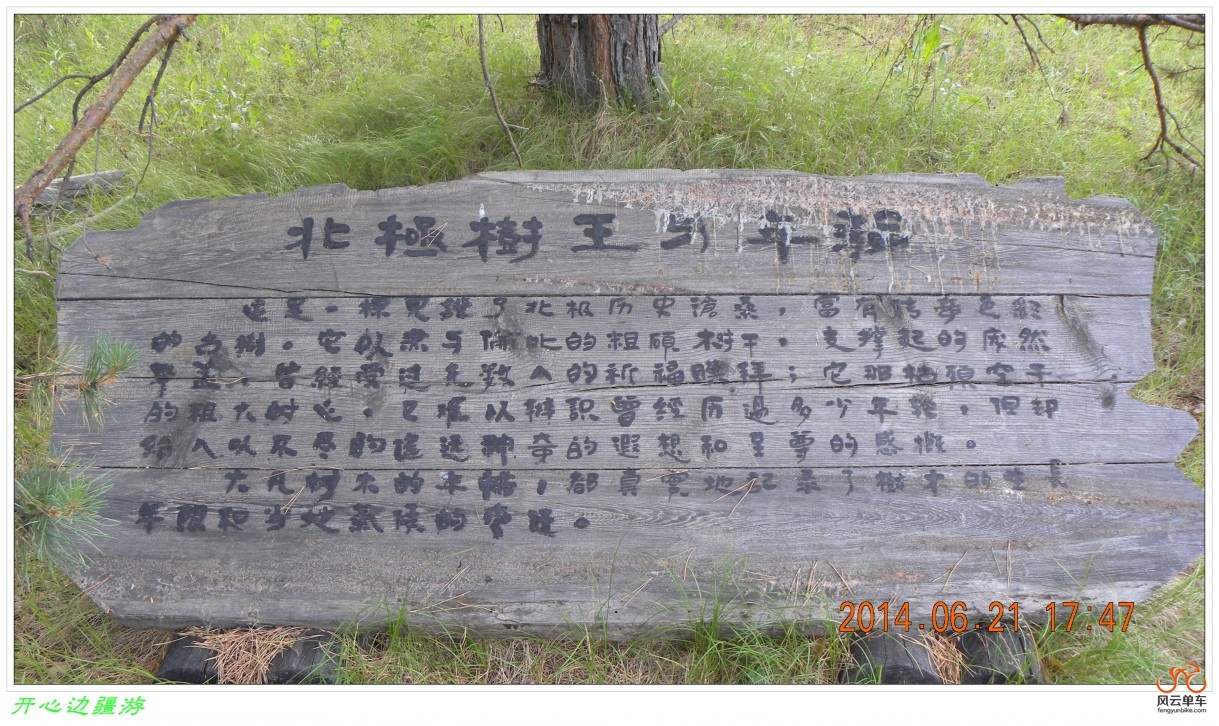 北極樹王与年輪
這是一棵見證了北极历史滄桑，富有传奇色彩
的古樹。它以柔与傾比的粗碩树干，支撑起的庞然
華盖，曾經受过无数人的祈福膜拜；它那枯碩空干
的粗大树心，已难以辨識曾經历過多少年輪，但却
給人以不尽的遙远神奇的遐想和至尊的感概。
大凡树木的年輪，都真實地記录了樹木的生長
年限和当地氣候的变迁。
2014.06.21 17:47
开心边疆游
风云单车
fengyunbike.com